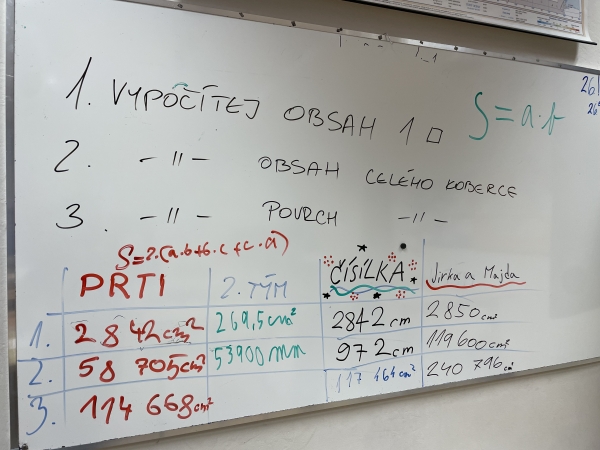 1. VYPOČÍTEJ OBSAH 1 □ S=a·b
2. -〃- OBSAH CELÉHO KOBERCE
3. -〃- POVRCH -〃-
S=2·(a·b+b·c+c·a)
PRTI 2. TÝM ČÍSILKA Jirka a Majda
1. 2842cm² 269,5cm² 2842cm 2850cm²
2. 58 705cm² 53900mm 972cm 119600cm²
3. 114 668cm² 117 164cm² 240 796cm²